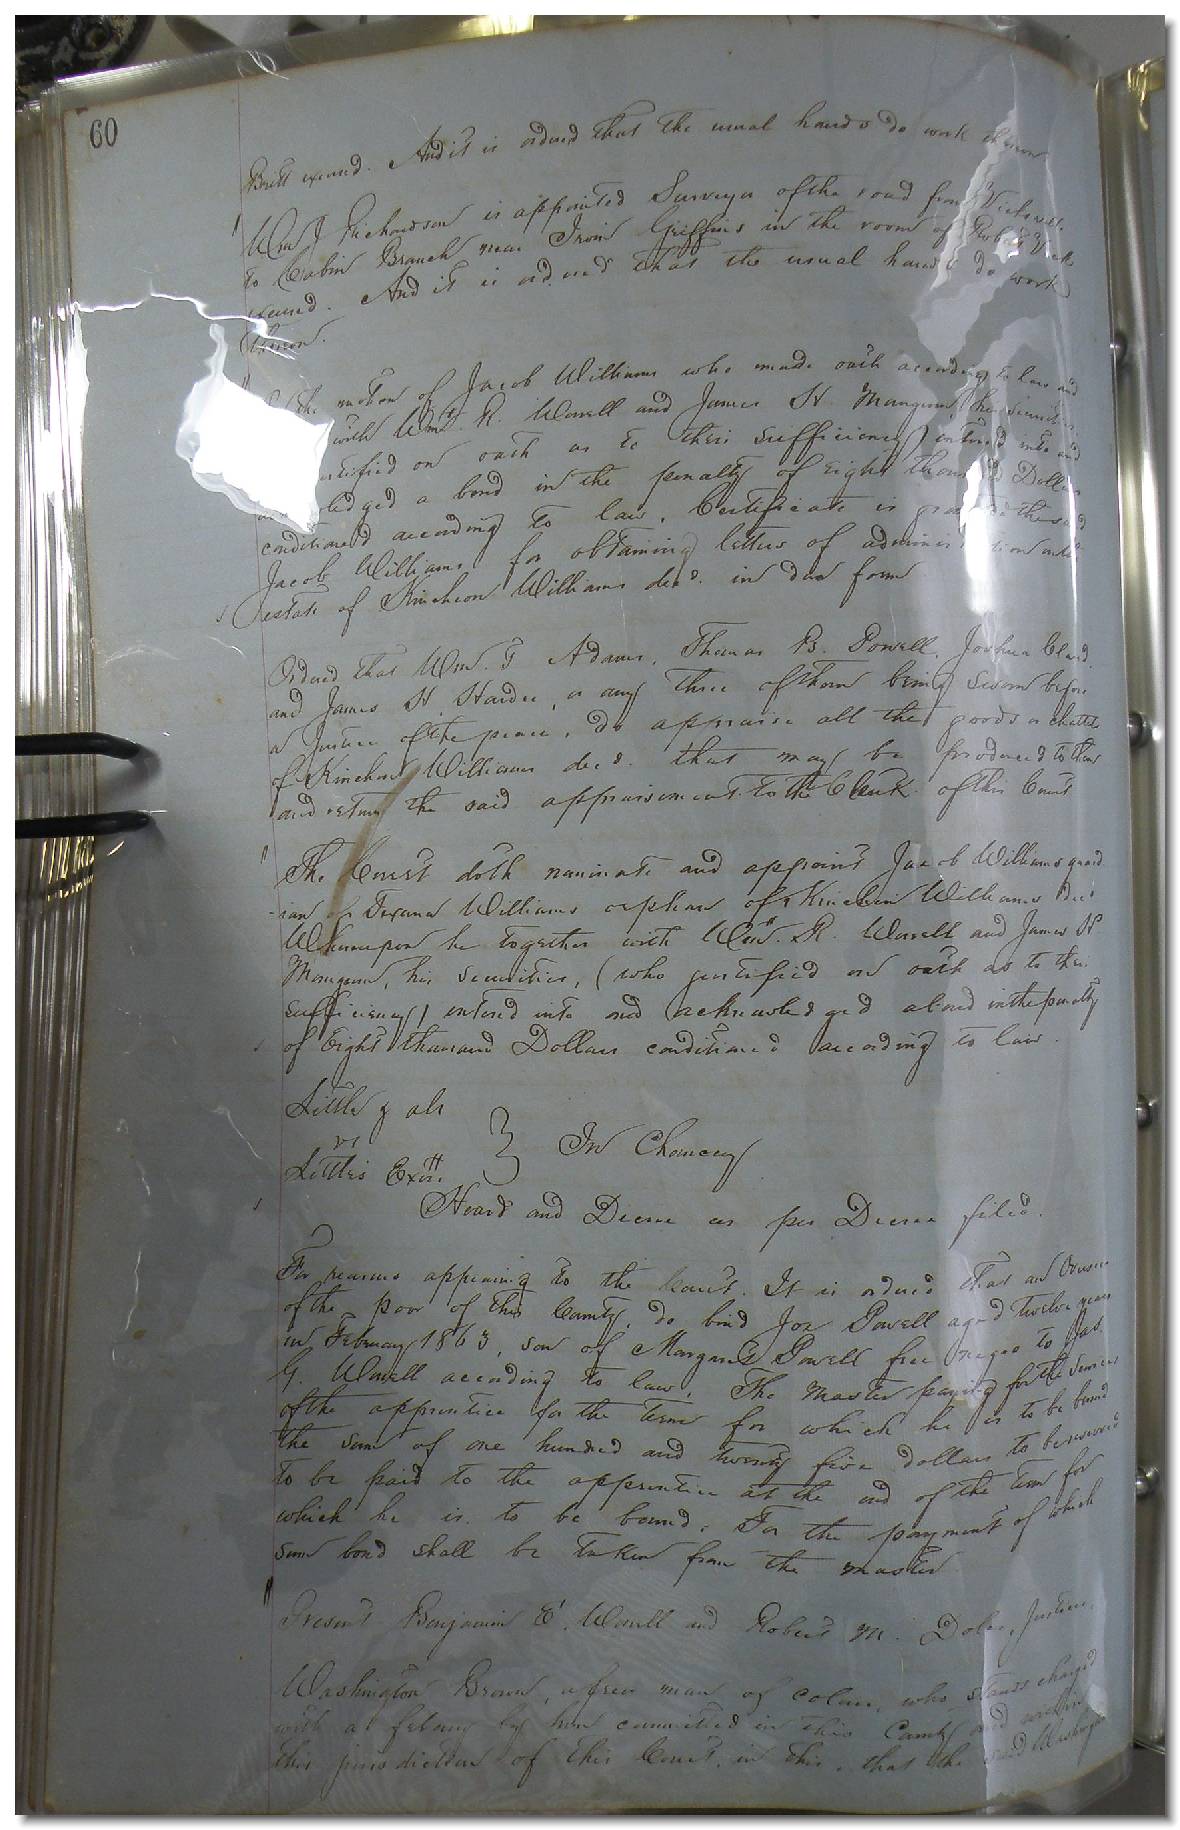 60
Britt excused. And it is ordered that the usual hands do work thereon
Wm J Richardson is appointed Surveyor of the road from
to Cabin Branch near Irvin Griffins in the room of Robert
excused. And it is ordered that the usual hands do work
thereon.
the motion of Jacob Williams who made oath according to law and
with Wm. R. Worrell and James H. Mangum his securities
justified on oath as to their sufficiency) entered into and
ledged a bond in the penalty of Eight thousand Dollars
conditioned according to law. Certificate is granted the said
Jacob Williams for obtaining letters of administration on the
estate of Kincheon Williams decd. in due form
Ordered that Wm. T Adams, Thomas B. Powell, Joshua Claud
and James H. Hardee, or any three of them being sworn before
a Justice of the peace, do appraise all the goods or chattels
of Kinchen Williams decd. that may be produced to them
and return the said appraisement to the Clerk of this Court
The Court doth nominate and appoint Jacob Williams guard
-ian of Texana Williams orphan of Kinchen Williams decd
Whereupon he together with Wm. R. Worrell and James H.
Mangum, his securities, (who justified on oath as to their
sufficiency) entered into and acknowledged a bond in the penalty
of Eight thousand Dollars conditioned according to law.
Little & als
vs
Little's Exor.
} In Chancery
Heard and Decree as per Decree filed.
For reasons appearing to the Court. It is ordered that an Overseer
of the poor of this County, do bind Joe Powell aged twelve years
in February 1863, son of Margaret Powell free negro to Jas.
G. Worrell according to law. The Master paying for the services
of the apprentice for the term for which he is to be bound
the sum of one hundred and twenty five dollars to be
to be paid to the apprentice at the end of the term for
which he is to be bound. For the payment of which
sum bond shall be taken from the master
Present Benjamin E. Worrell and Robert M. Doles, Justices.
Washington Brown, a free man of colour, who stands charged
with a felony by him committed in this County and within
this jurisdiction of this Court, in this, that the said Washington